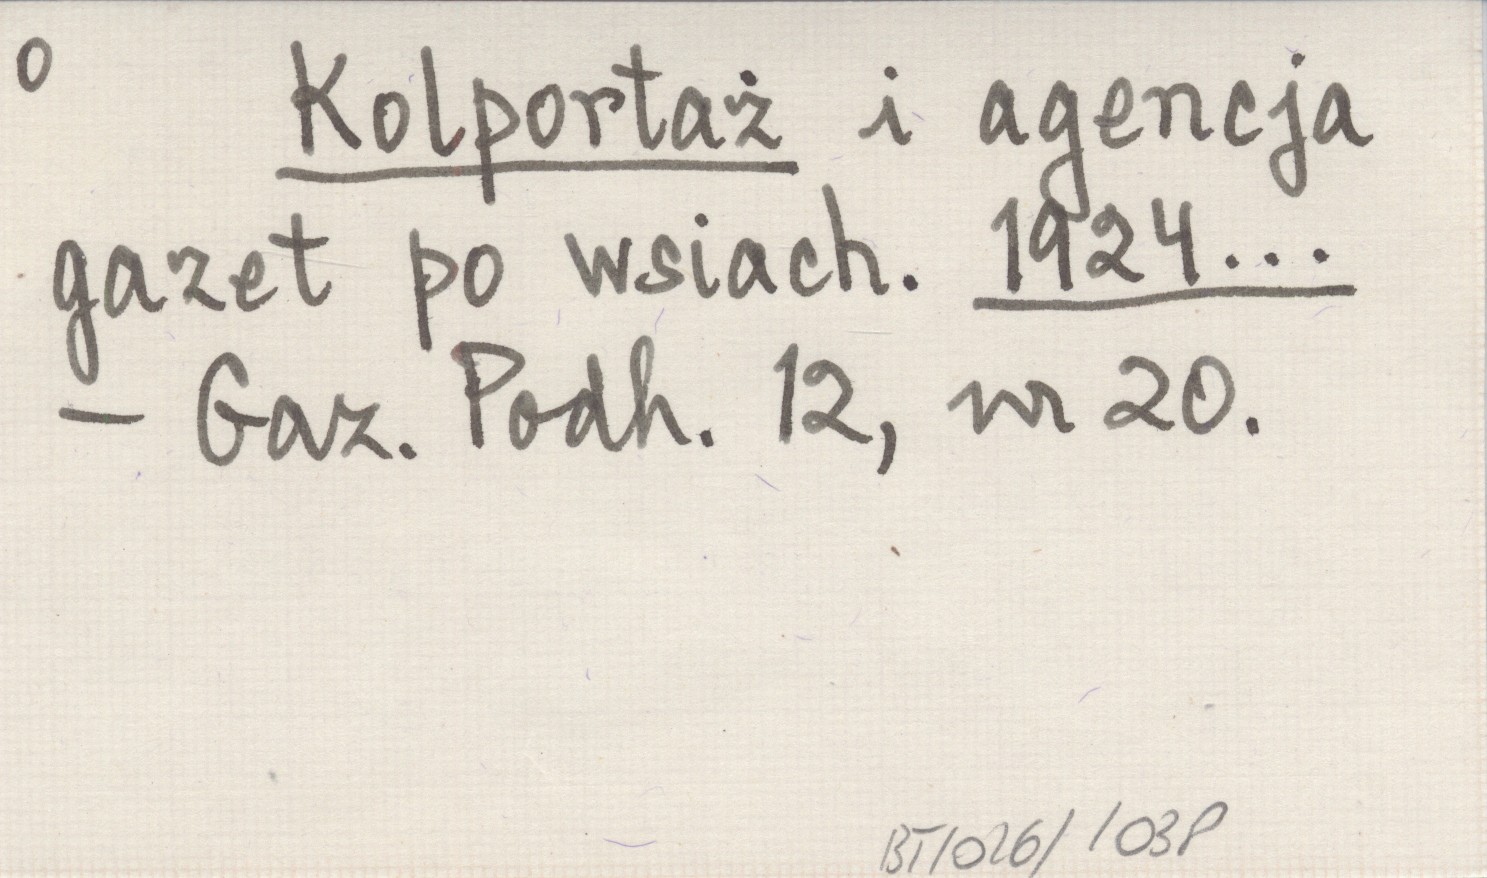 o Kolportaż i agencja
gazet po wsiach. 1924...
– Gaz. Podh. 12, nr 20.
BT/026/103P